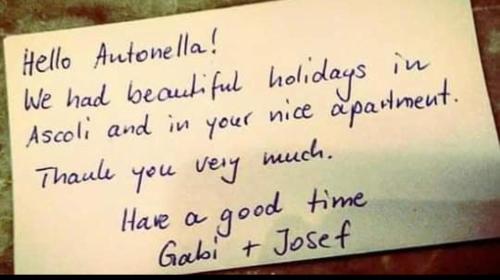 Hello Antonella!
We had beautiful holidays in
Ascoli and in your nice apartment.
Thank you very much.
Have a good time
Gabi + Josef